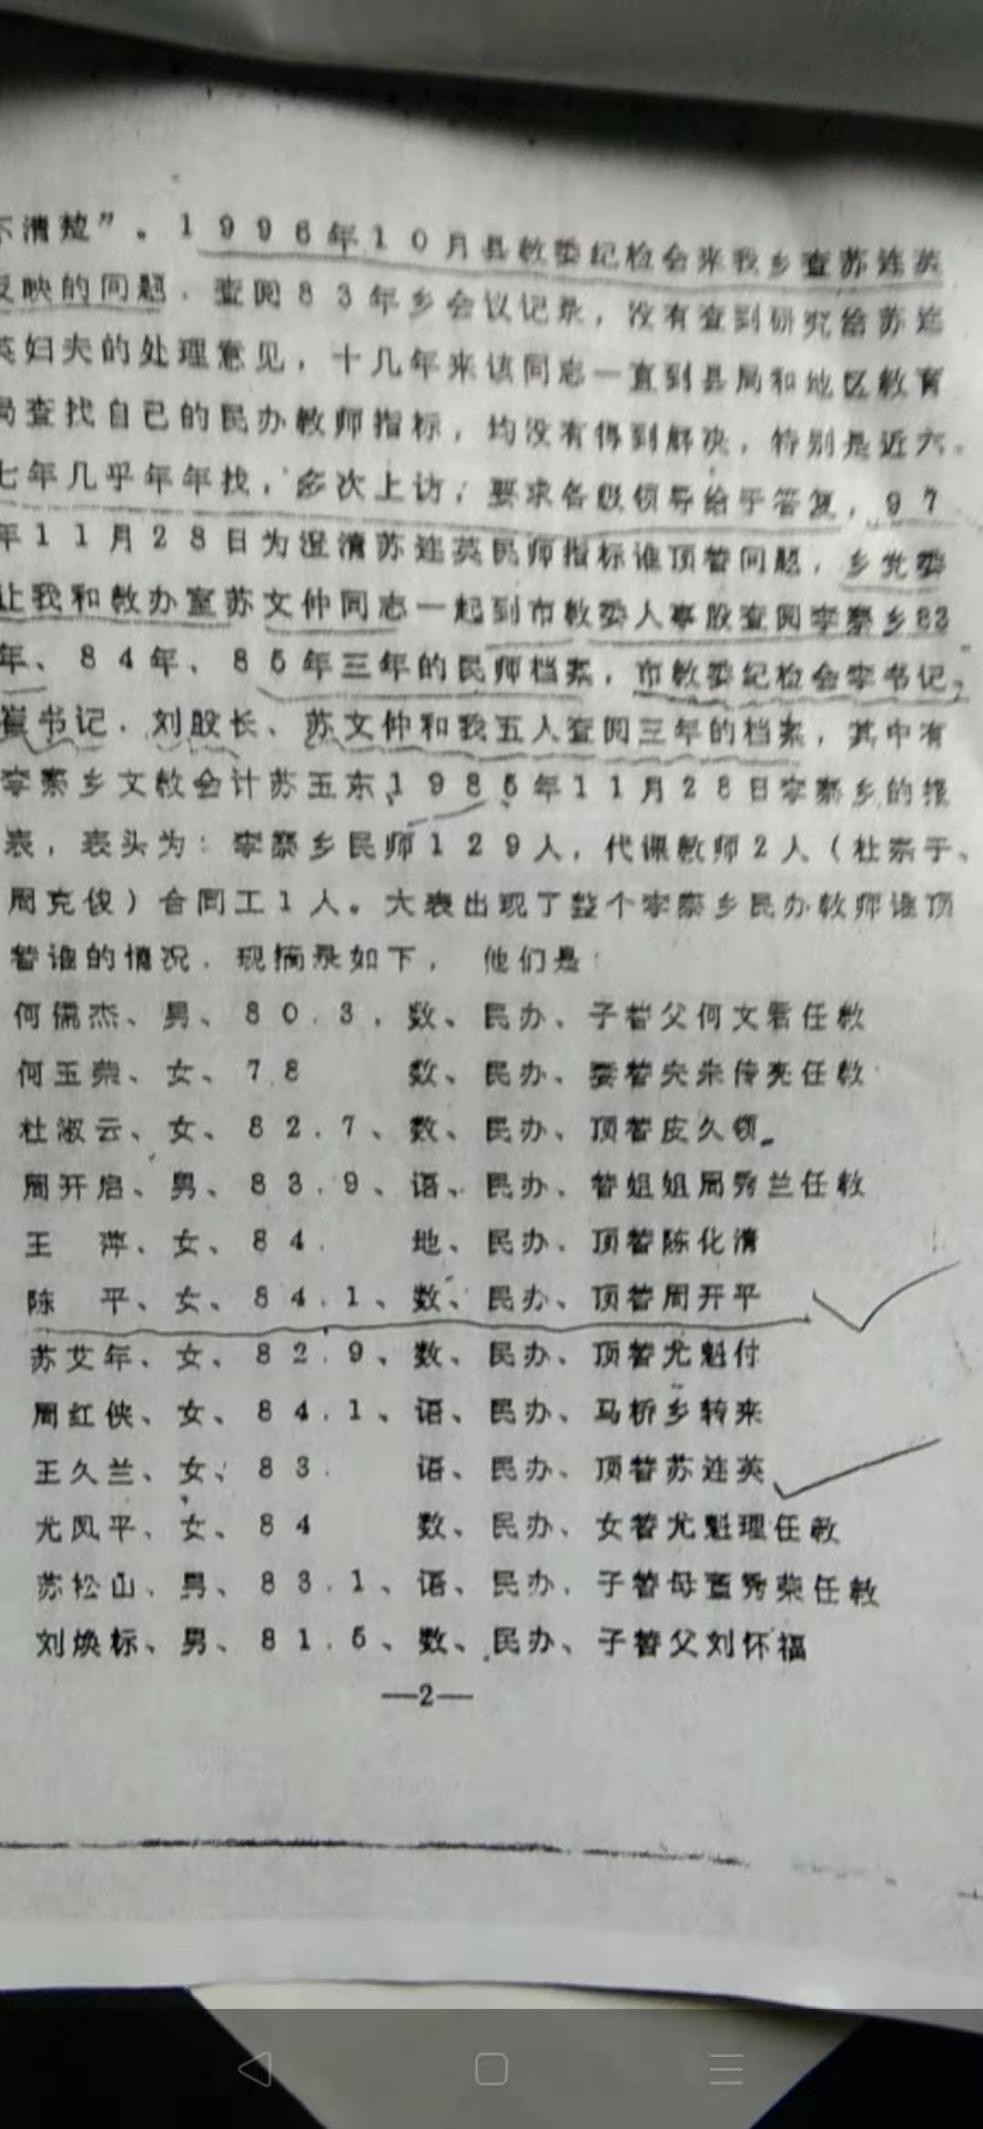 不清楚”。1996年10月县教委纪检会来我乡查苏连英
反映的问题，查阅83年乡会议记录，没有查到研究给苏连
英妇夫的处理意见，十几年来该同志一直到县局和地区教育
局查找自己的民办教师指标，均没有得到解决，特别是近六、
七年几乎年年找，多次上访，要求各级领导给予答复，97
年11月28日为澄清苏连英民师指标谁顶替问题，乡党委
让我和教办室苏文仲同志一起到市教委人事股查阅李寨乡83
年、84年、85年三年的民师档案，市教委纪检会李书记，
崔书记、刘股长、苏文仲和我五人查阅三年的档案，其中有
李寨乡文教会计苏玉东1985年11月28日李寨乡的报
表，表头为：李寨乡民师129人，代课教师2人（杜宗于、
周克俊）合同工1人。大表出现了整个李寨乡民办教师谁顶
替谁的情况，现摘录如下，他们是：
何儒杰、男、80.3，数、民办、子替父何文君任教
何玉荣、女、78 数、民办、妻替夫朱传亮任教
杜淑云、女、82.7、数、民办、顶替皮久领。
周开启、男、83.9、语、民办、替姐姐周秀兰任教
王 萍、女、84. 地、民办、顶替陈化清
陈 平、女、84.1、数、民办、顶替周开平
苏艾年、女、82.9、数、民办、顶替尤魁付
周红侠、女、84.1、语、民办、马桥乡转来
王久兰、女、83. 语、民办、顶替苏连英
尤凤平、女、84 数、民办、女替尤魁理任教
苏松山、男、83.1、语、民办、子替母董秀荣任教
刘焕标、男、81.5、数、民办、子替父刘怀福
—2—